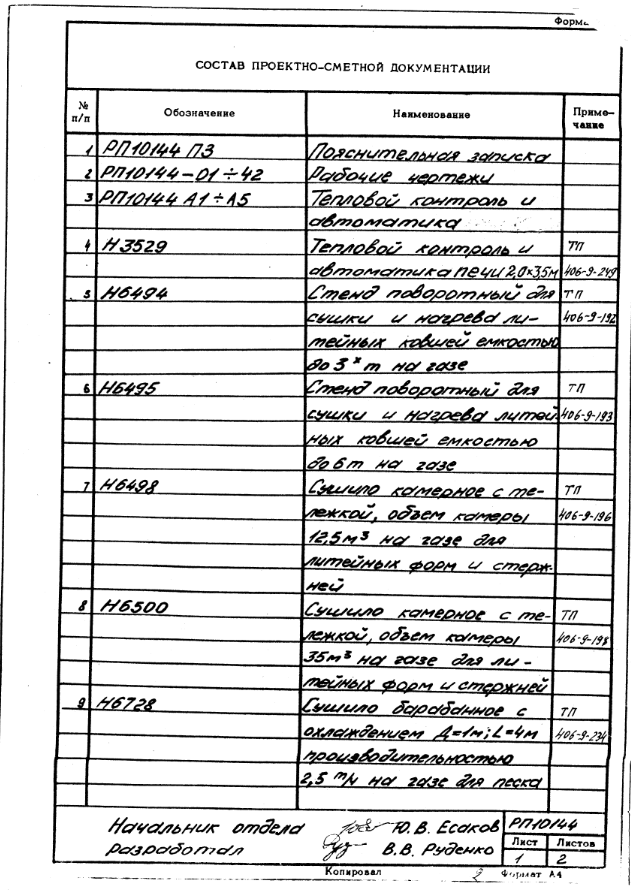 СОСТАВ ПРОЕКТНО-СМЕТНОЙ ДОКУМЕНТАЦИИ
№ п/п Обозначение Наименование Приме-чание
1 РП10144 ПЗ Пояснительная записка
2 РП10144-01÷42 Рабочие чертежи
3 РП10144 А1÷А5 Тепловой контроль и
автоматика
4 Н3529 Тепловой контроль и ТП
автоматика печи 2,0×3,5м 406-9-249
5 Н6494 Стенд поворотный для ТП
сушки и нагрева ли- 406-9-192
тейных ковшей емкостью
до 3ˣ т на газе
6 Н6495 Стенд поворотный для ТП
сушки и нагрева литей- 406-9-193
ных ковшей емкостью
до 6т на газе
7 Н6498 Сушило камерное с те- ТП
лежкой, объем камеры 406-9-196
12,5м³ на газе для
литейных форм и стерж-
ней
8 Н6500 Сушило камерное с те- ТП
лежкой, объем камеры 406-9-198
35м³ на газе для ли-
тейных форм и стержней
9 Н6728 Сушило барабанное с ТП
охлаждением Д=1м; L=4м 406-9-234
производительностью
2,5 т/ч на газе для песка
Начальник отдела Ю.В. Есаков РП10144
разработал В.В. Руденко
Лист Листов
1 2
Копировал Формат А4